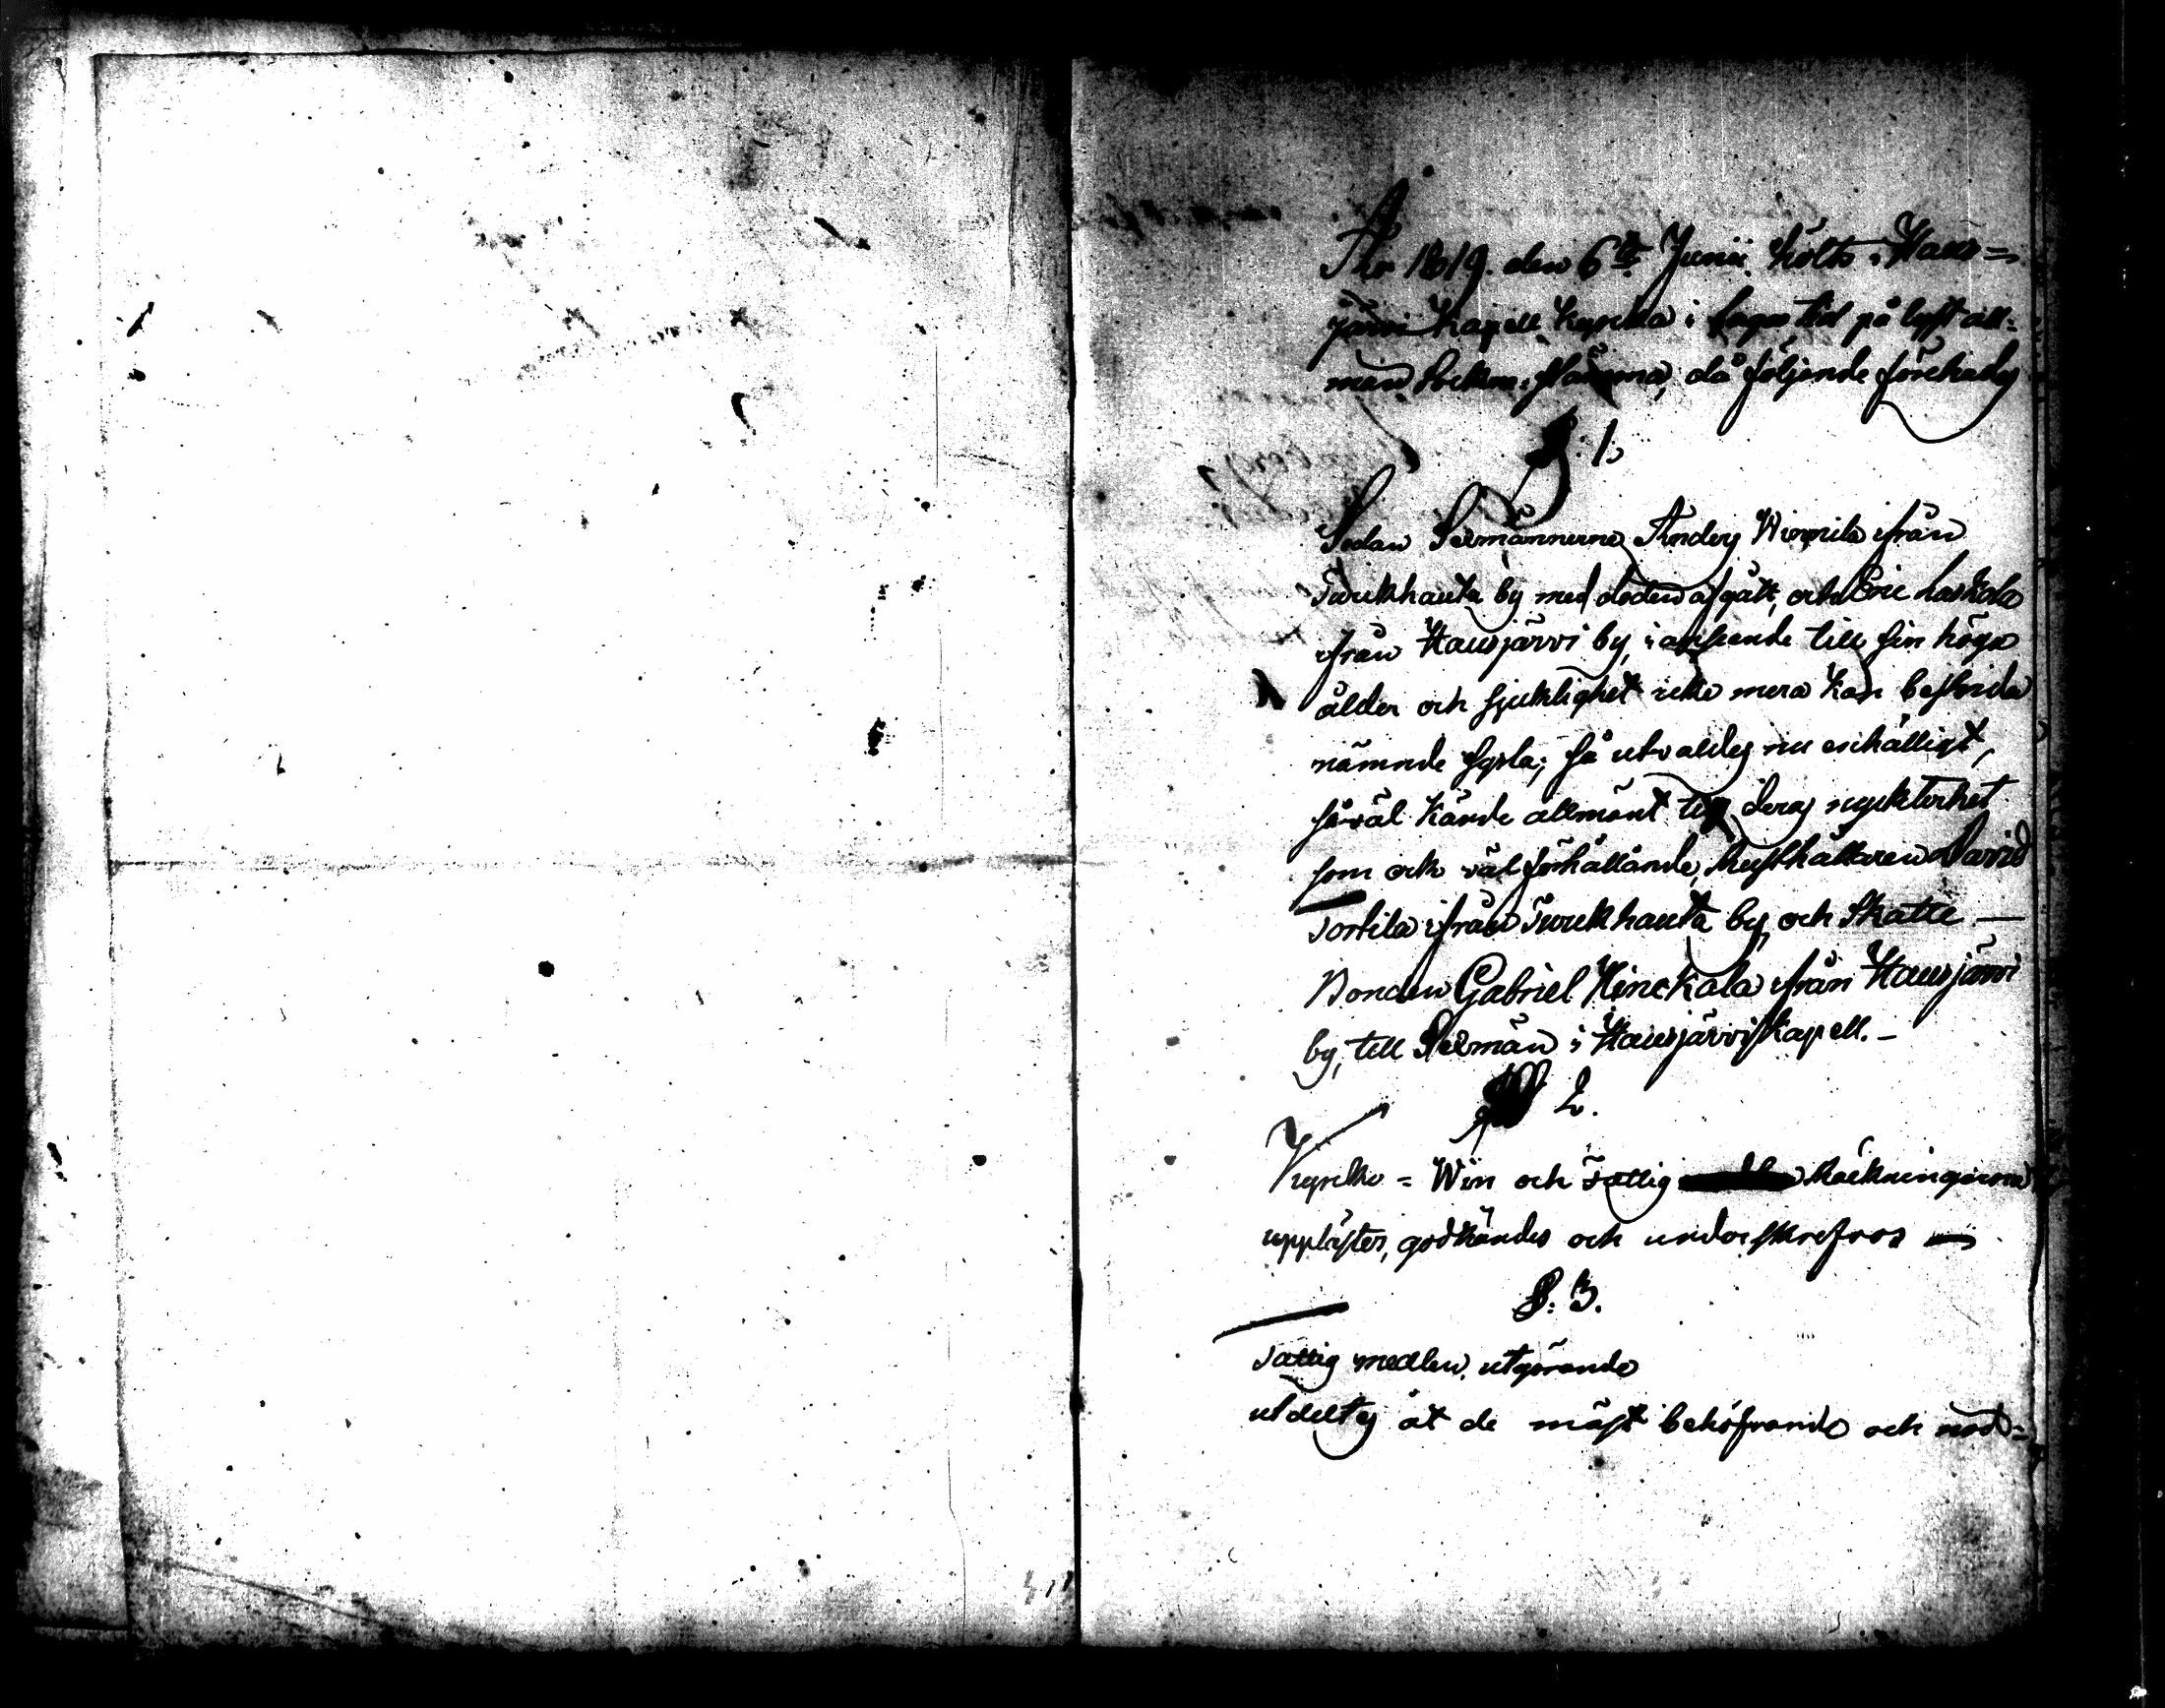 År 1819. den 6te Junii hölts i Haus=
järvi Kapell Kyrka i laga tid på lyst all=
män Sockne Stämma, då följande förehades
§: 1.
Sedan Sexmännerne Anders Wirpila ifrån
Turckhauta by med döden afgått, och Eric Laskola
ifrån Hausjärvi by, i anseende till sin höga
ålder och sjuklighet icke mera kan bestrida
nämnde sysla; så utvaldes nu enhälligt,
såväl kände allmänt till deras nyckterhet
som ock väl förhållande, Rusthållaren David
Torfila ifrån Turckhauta by, och Skatte —
Bonden Gabriel Hinckala ifrån Hausjärvi
by, till Sexmän i Hausjärvi Kapell. —
§ 2.
Kyrcko = Win och Fattig Räckningarna
upplästes, godkändes och underskrefvos —
§: 3.
Fattig medlen, utgörande
utdeltes åt de mäst behöfvande och nöd=